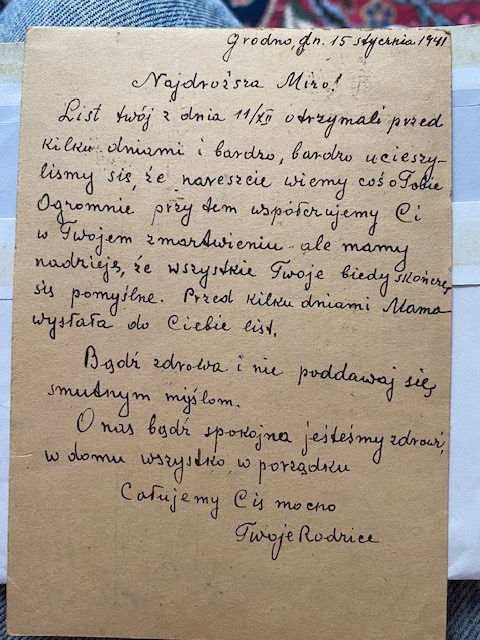 Grodno, dn. 15 stycznia 1941
Najdroższa Miro!
List twój z dnia 11/XII otrzymali przed
kilku dniami i bardzo, bardzo ucieszy-
liśmy się, że nareszcie wiemy coś o Tobie
Ogromnie przy tem współczujemy Ci
w Twojem zmartwieniu ale mamy
nadzieję, że wszystkie Twoje biedy skończą
się pomyślne. Przed kilku dniami Mama
wysłała do Ciebie list.
Bądź zdrowa i nie poddawaj się
smutnym myślom.
O nas bądź spokojna jesteśmy zdrowi,
w domu wszystko w porządku
Całujemy Cię mocno
Twoje Rodzice